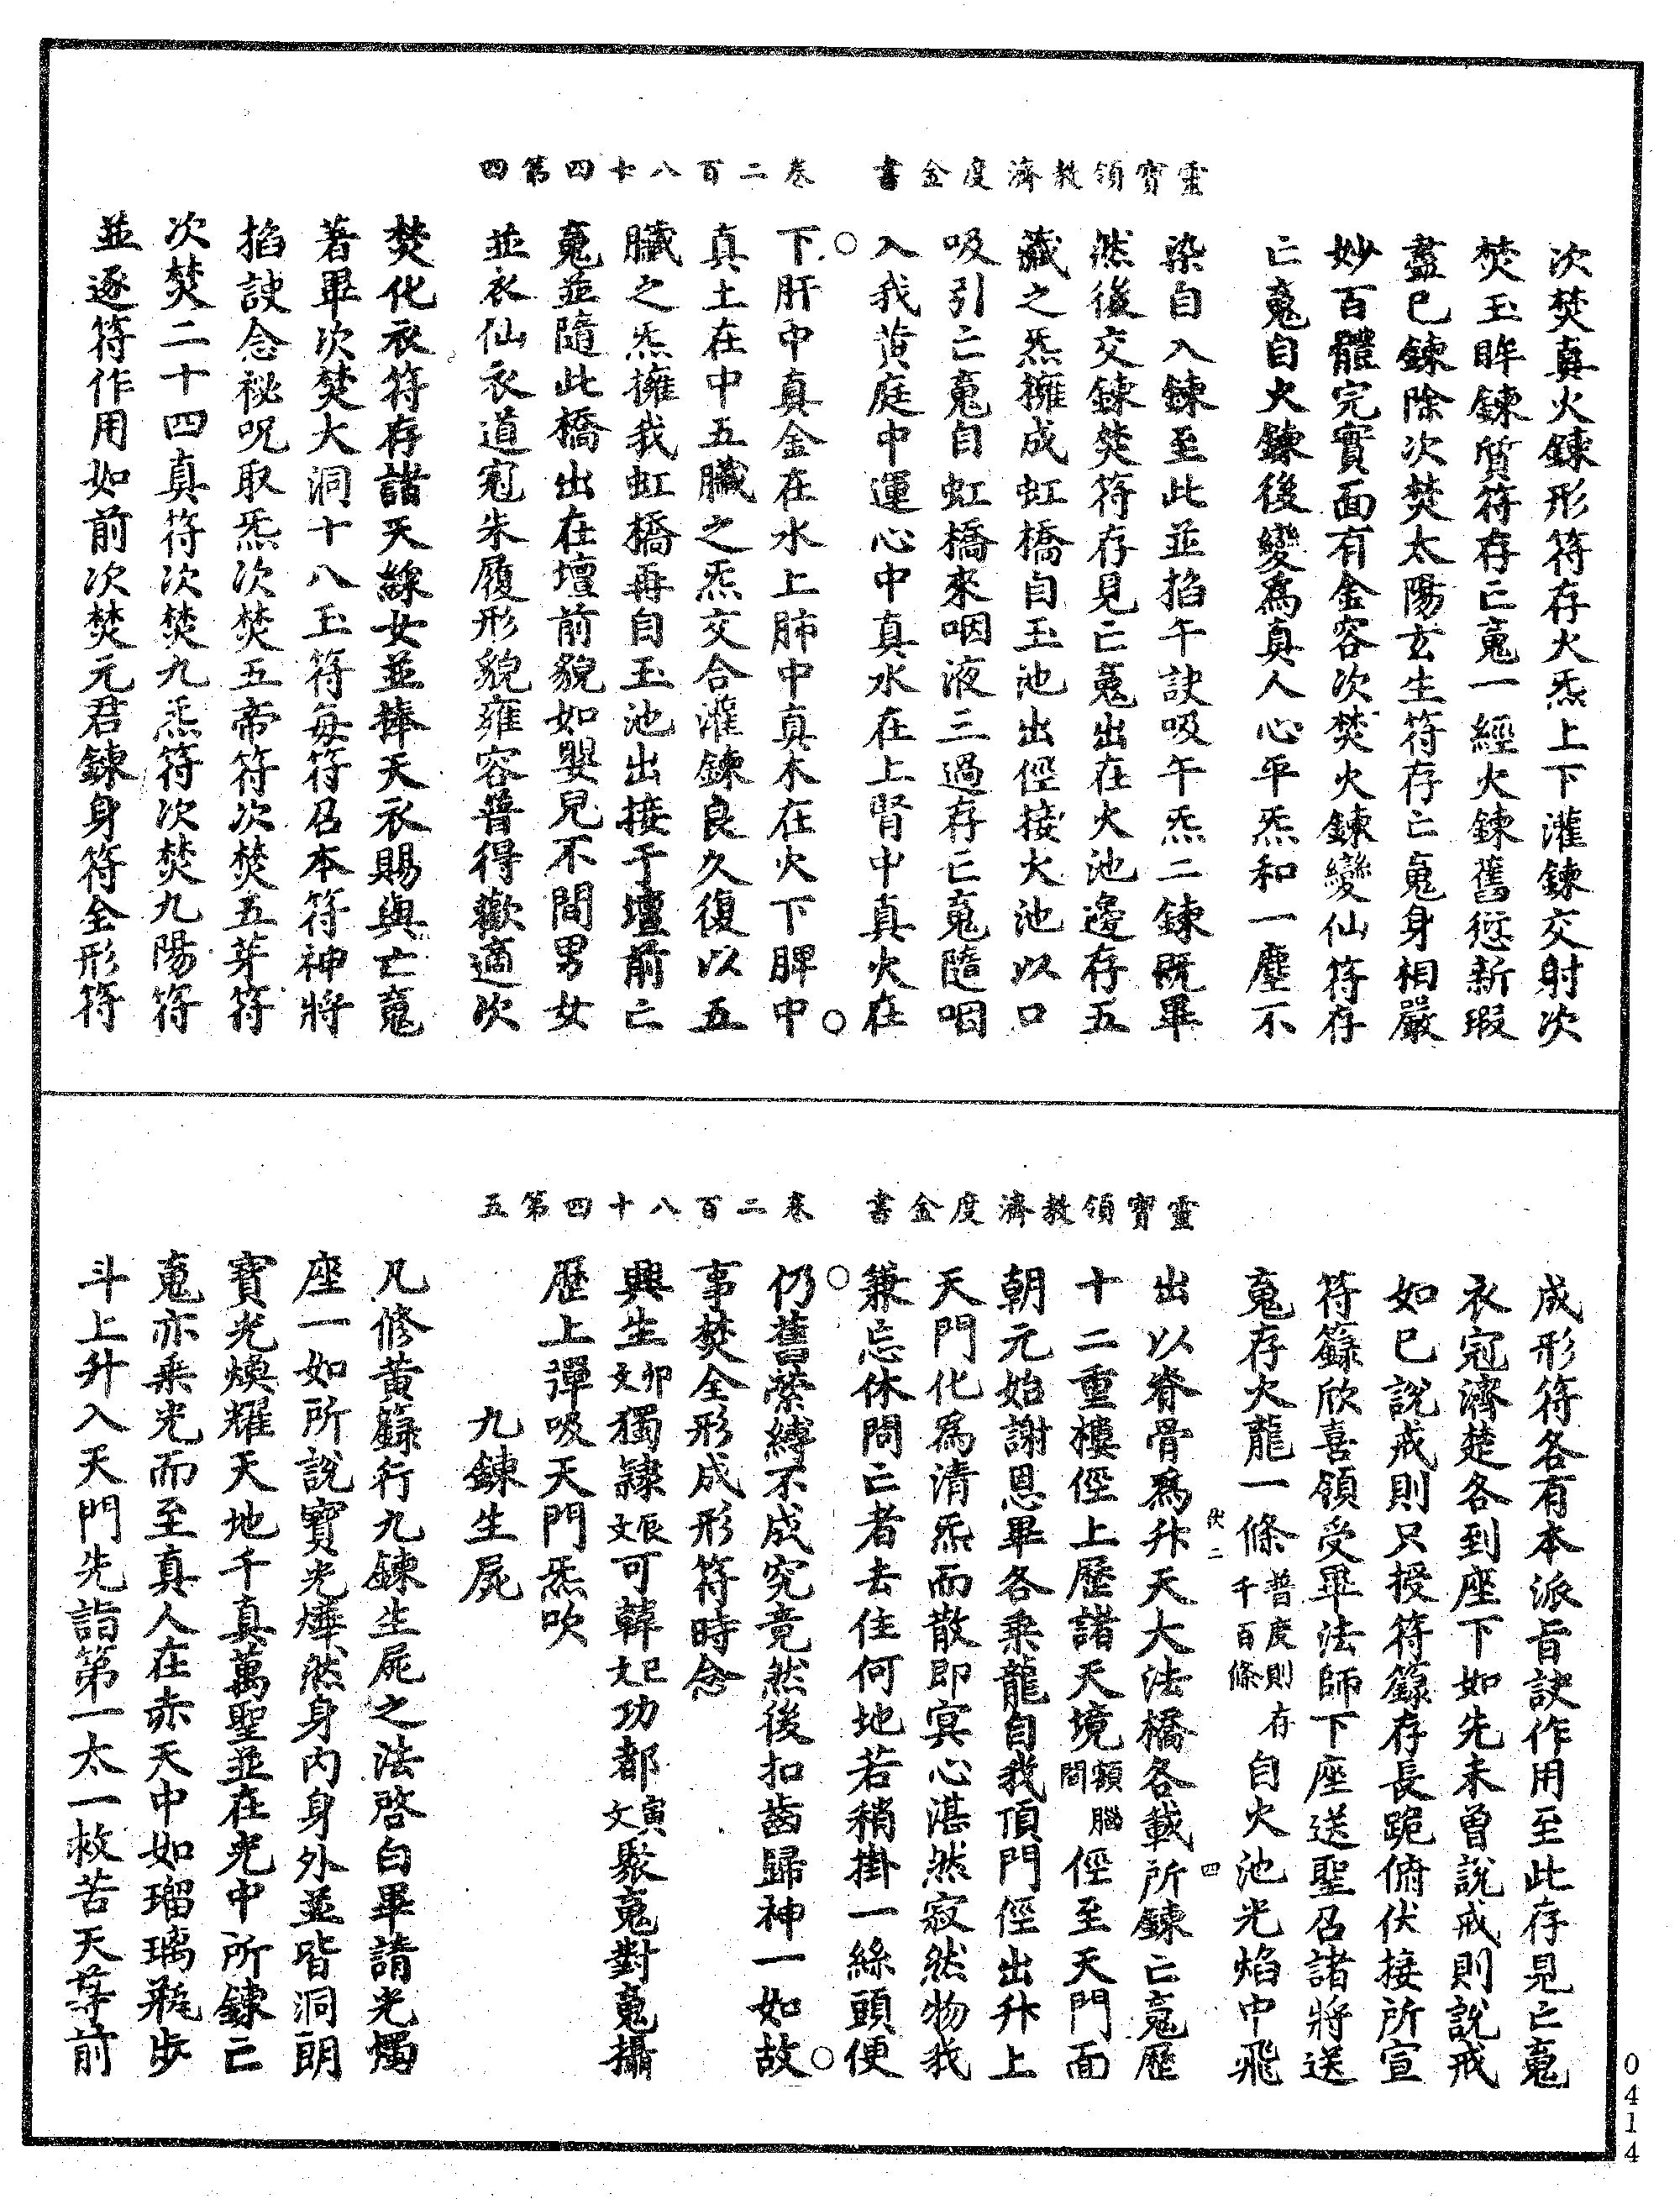 靈寶領教濟度金書　卷二百八十四第四
次焚真火鍊形符存火炁上下灌鍊交射次
焚玉眸鍊質符存亡䰟一經火鍊舊愆新瑕
盡已鍊除次焚太陽玄生符存亡䰟身相嚴
妙百體完實面有金容次焚火鍊變仙符存
亡䰟自火鍊後變爲真人心平炁和一塵不
染自入鍊至此並掐午訣吸午炁二鍊既畢
然後交鍊焚符存見亡䰟出在火池邊存五
藏之炁擁成虹橋自玉池出俓接火池以口
吸引亡䰟自虹橋來咽液三過存亡䰟隨咽
入我黄庭中運心中真水在上腎中真火在
下肝中真金在水上肺中真木在火下脾中
真土在中五臟之炁交合灌鍊良久復以五
臟之炁擁我虹橋再自玉池出接于壇前亡
䰟並隨此橋出在壇前貌如嬰兒不間男女
並衣仙衣道冠朱履形貌雍容普得歡適次
焚化衣符存諸天婇女並捧天衣賜與亡䰟
著畢次焚大洞十八玉符每符召本符神將
掐訣念祕呪取炁次焚五帝符次焚五芽符
次焚二十四真符次焚九炁符次焚九陽符
並逐符作用如前次焚元君鍊身符全形符
靈寶領教濟度金書　卷二百八十四第五
成形符各有本派旨訣作用至此存見亡䰟
衣冠濟楚各到座下如先未曾說戒則說戒
如已說戒則只授符籙存長跪俯伏接所宣
符籙欣喜領受畢法師下座送聖召諸將送
䰟存火龍一條普度則存千百條自火池光焰中飛
出以脊骨爲升天大法橋各載所鍊亡䰟歷
十二重樓俓上歷諸天境額腦間俓至天門面
朝元始謝恩畢各乘龍自我頂門俓出升上
天門化爲清炁而散即冥心湛然寂然物我
兼忘休問亡者去住何地若稍掛一絲頭便
仍舊縈縛不成究竟然後扣齒歸神一如故
事焚全形成形符時念
興生卯文獨隸辰文可韓巳文功都寅文聚䰟對䰟攝
歷上彈吸天門炁吹
九鍊生屍
凡修黄籙行九鍊生屍之法啓白畢請光燭
座一如所說寶光燁然身内身外並皆洞朗
寶光煥耀天地千真萬聖並在光中所鍊亡
䰟亦乗光而至真人在赤天中如瑠璃瓶步
斗上升入天門先詣第一太一救苦天尊前
伏二
四
0414